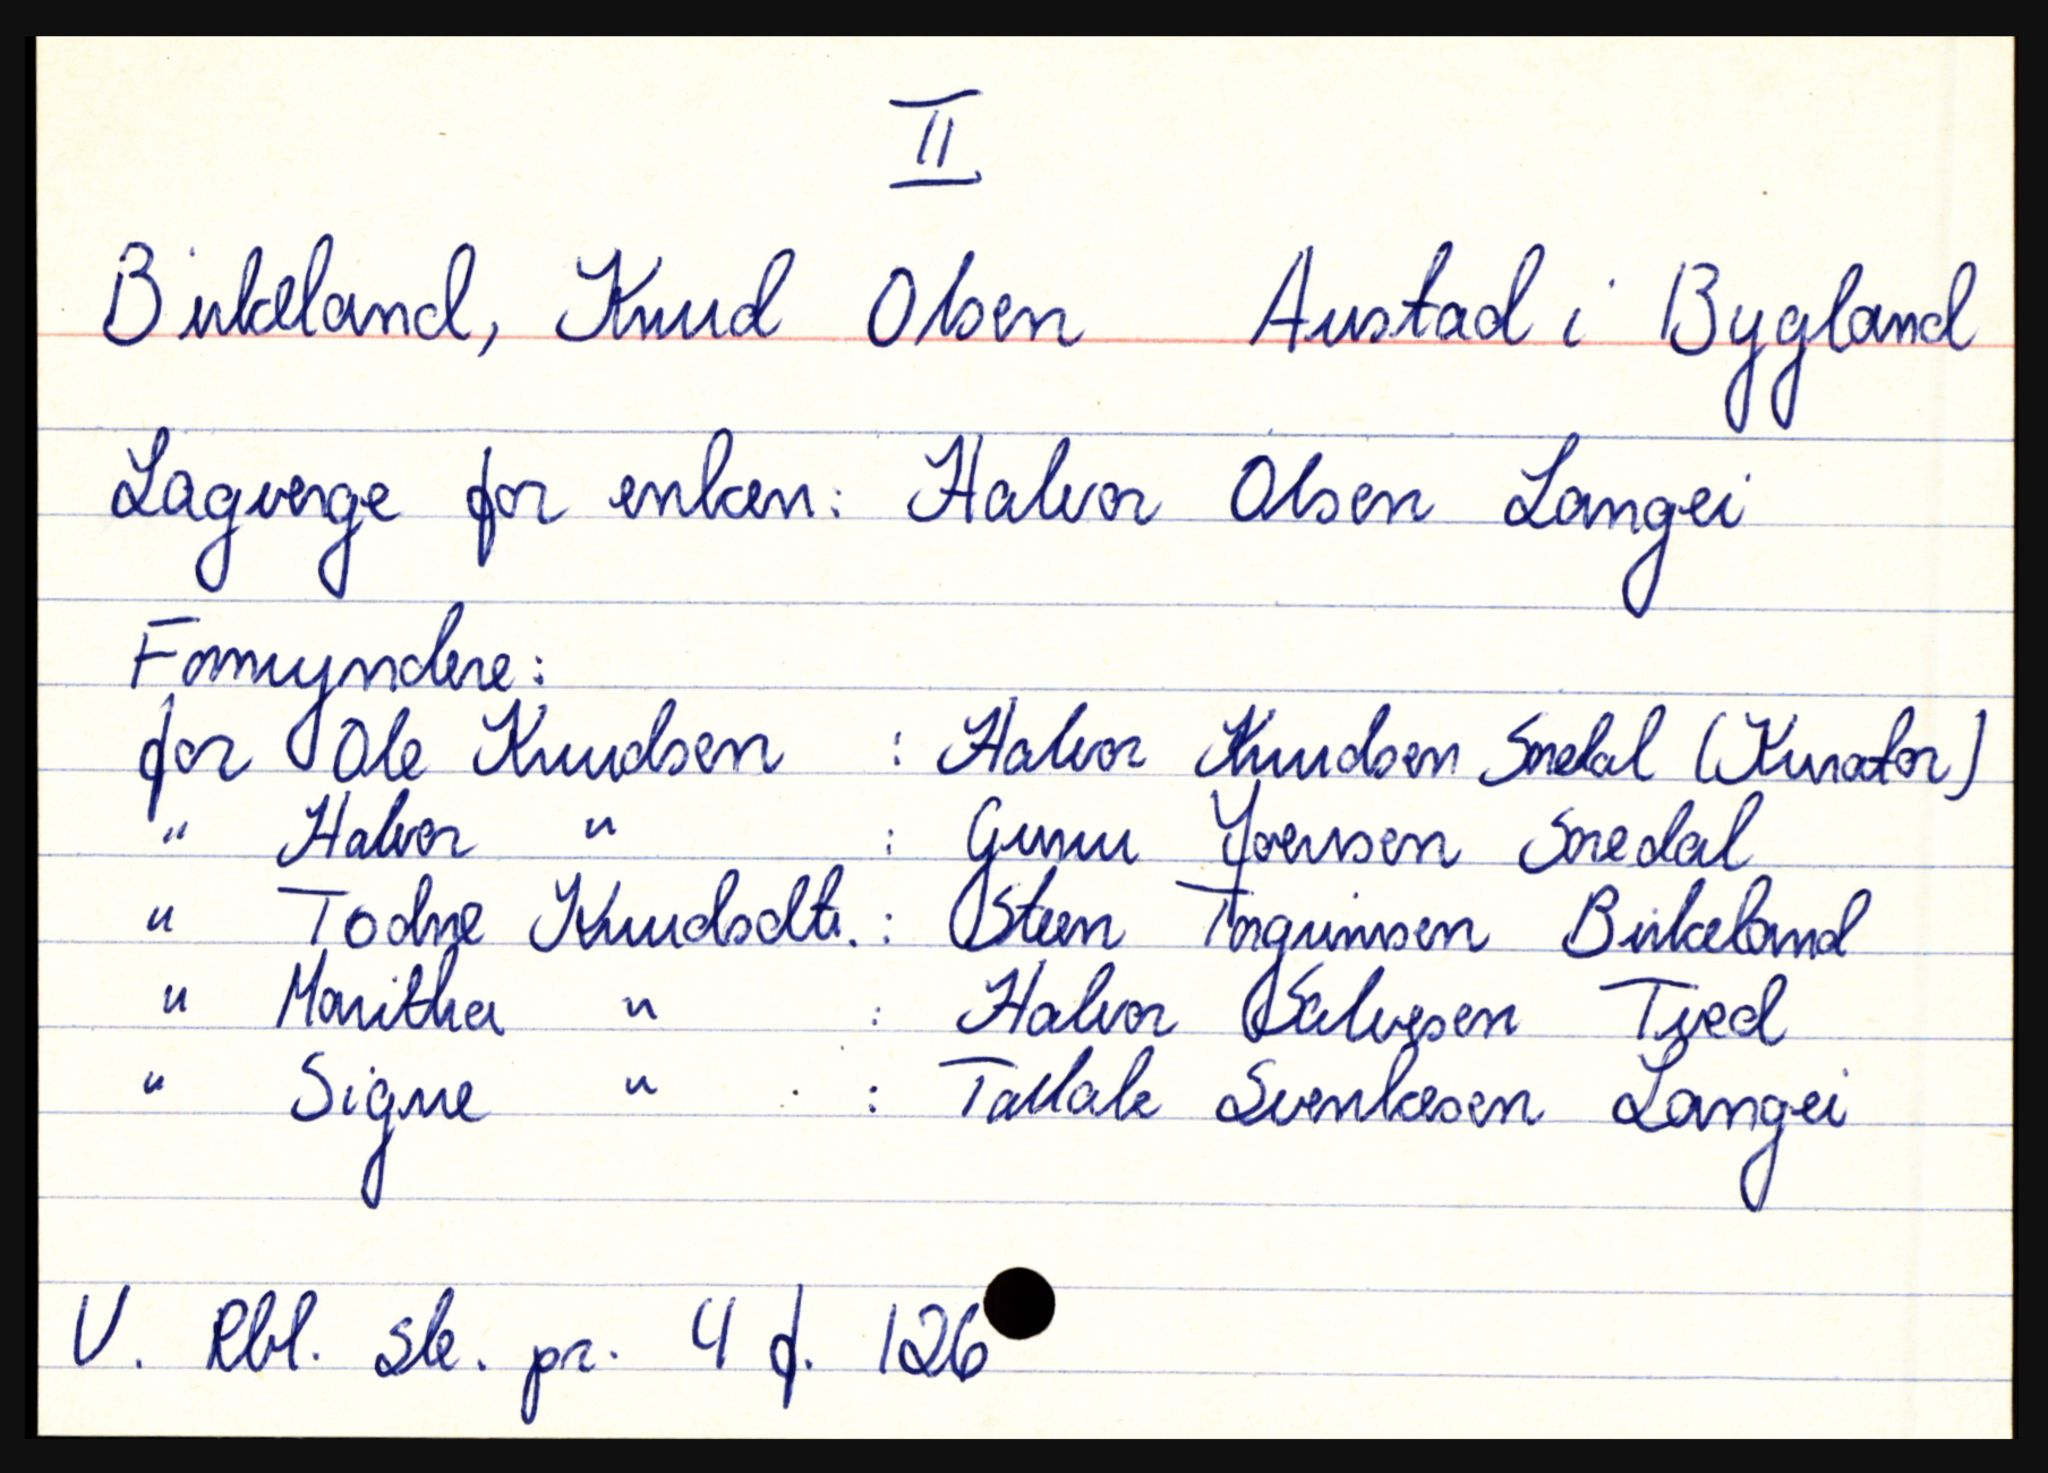 II
Birkeland, Knud Olsen Austad i Bygland
Lagverge for enken: Halvor Olsen Langei
Formyndere:
for Ole Knudsen : Halvor Knudsen Sordal (Kurator)
" Halvor " : Gunu Yversen Soredal
" Todne Knudsdtr. : Steen Torguimsen Birkeland
" Maritha " : Halvor Salvesen Tved
" Signe " : Tallak Svenkesen Langei
V. Rbl. sk. pr. 4 f. 126